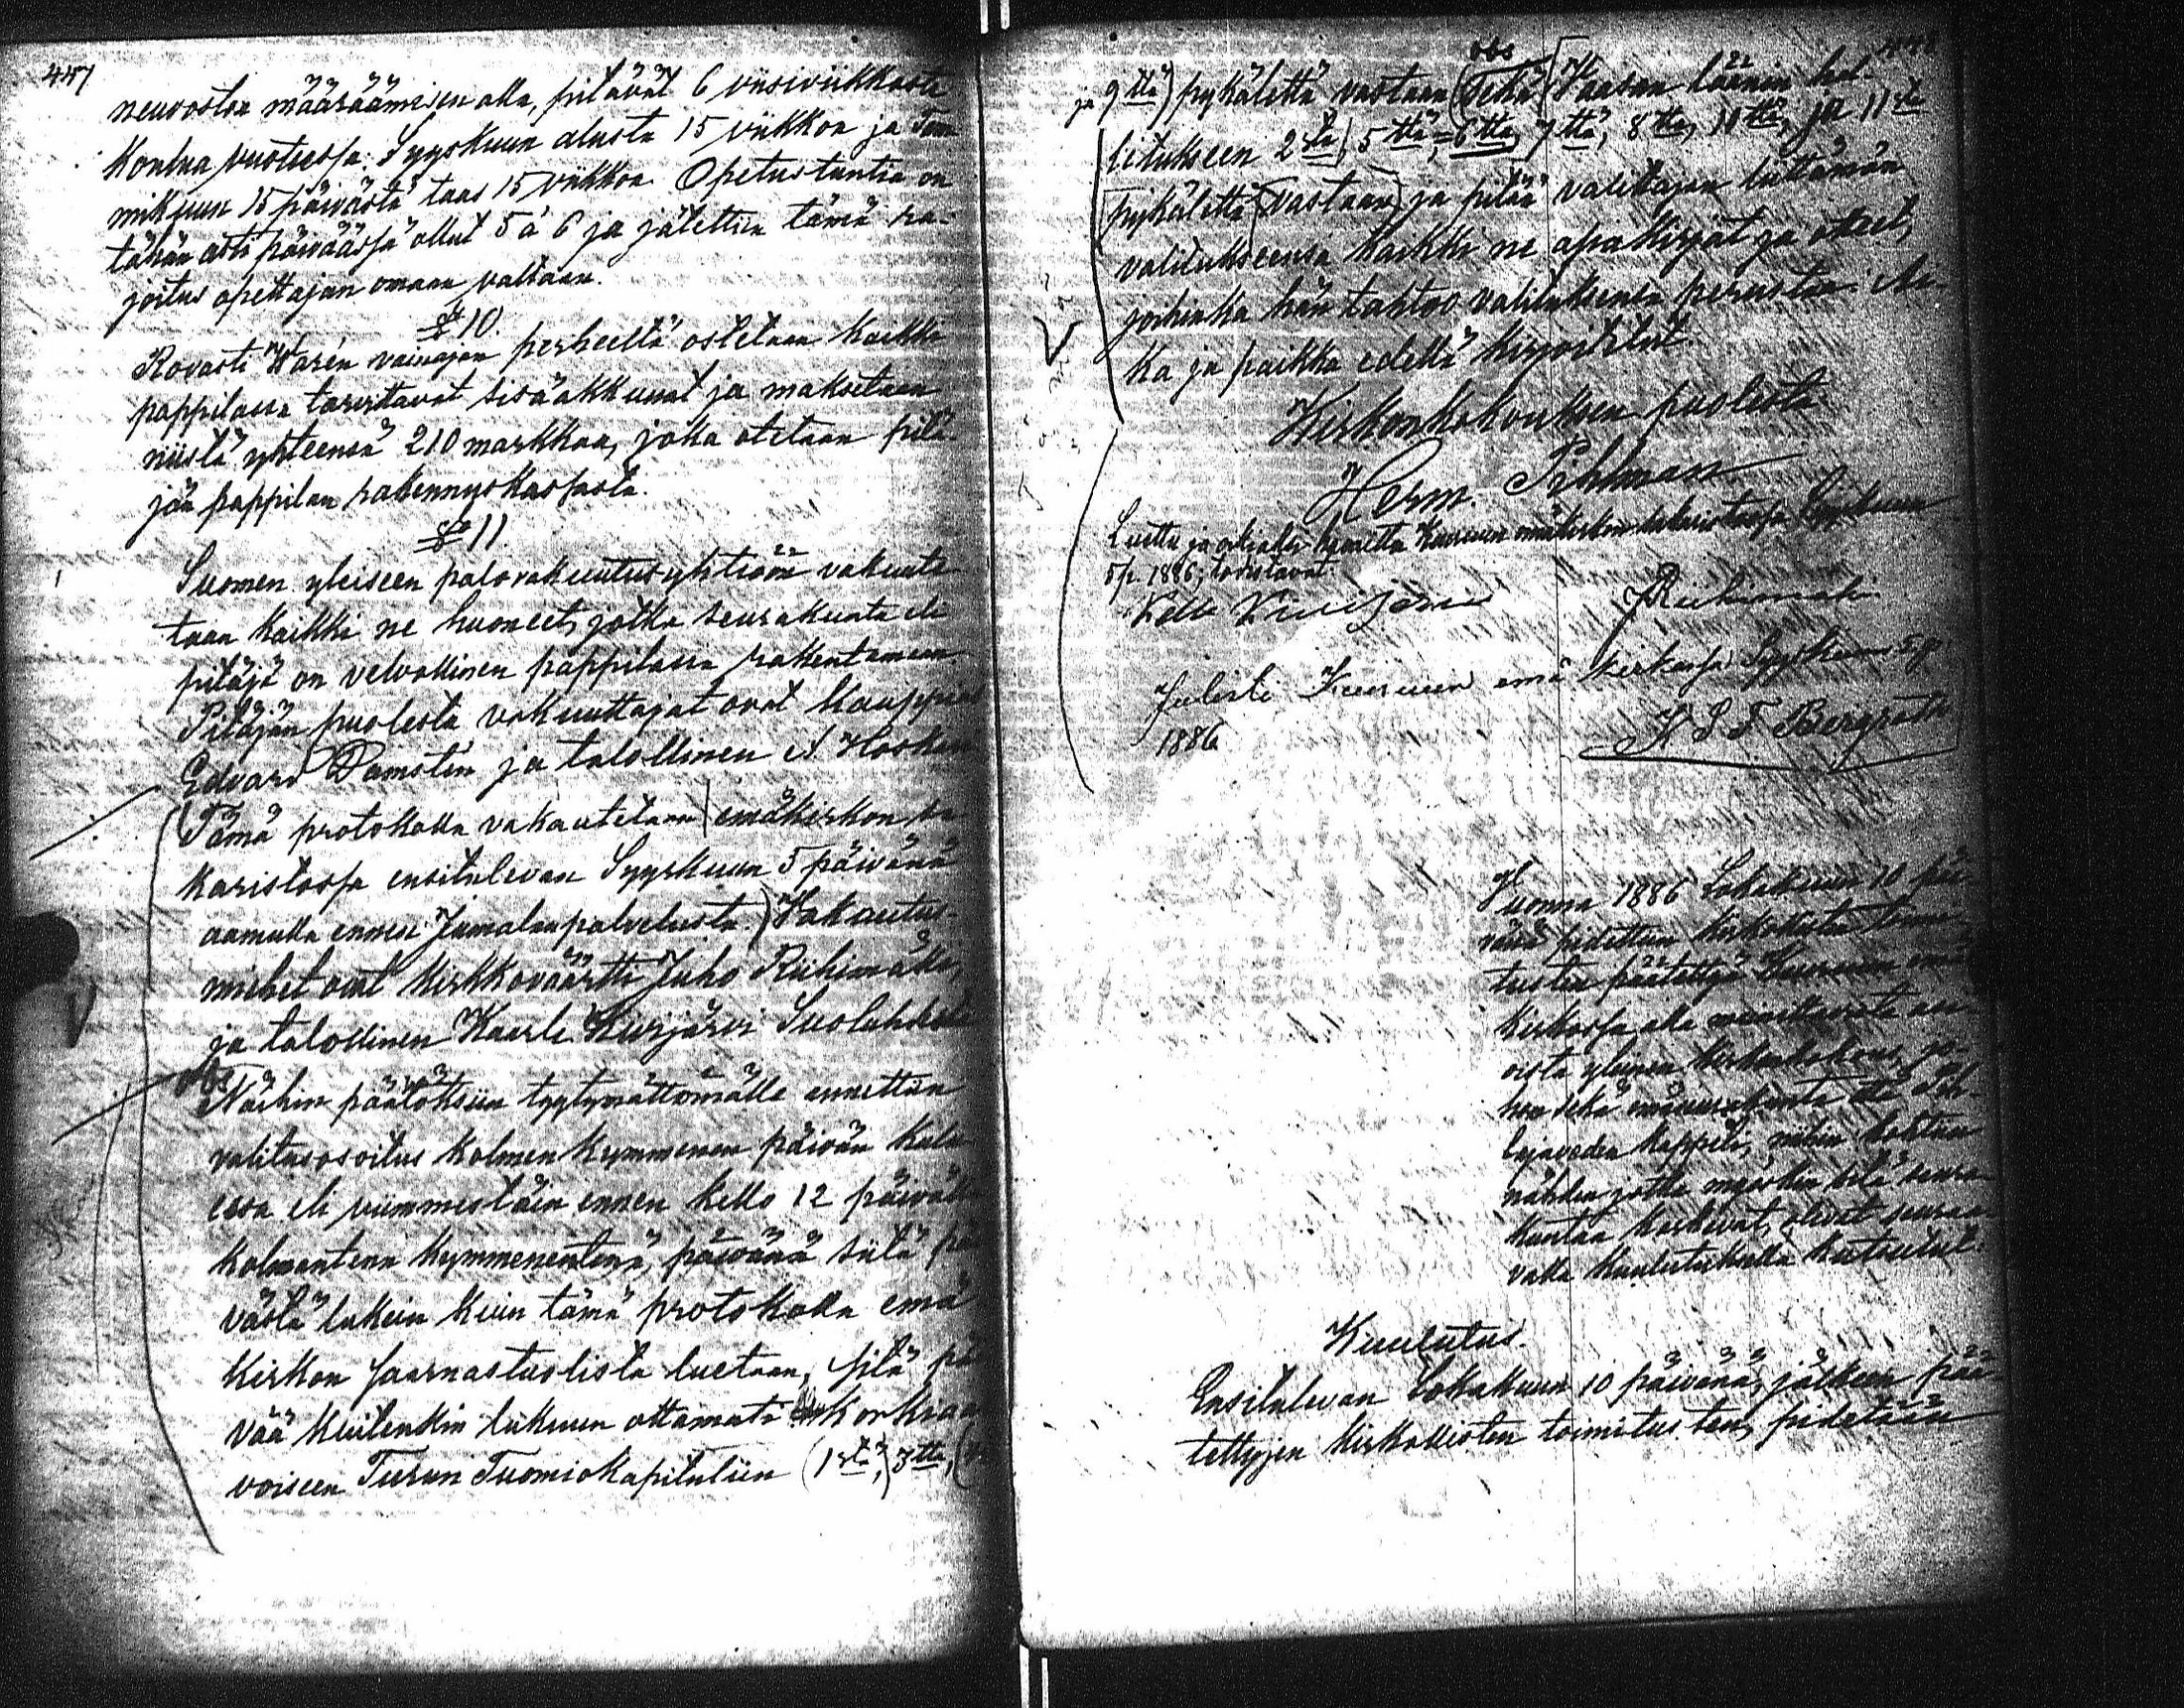 447
neuvoston määräämisen alla, pitävät 6 viisiviikkoista
koulua vuotuessa: Syyskuun alusta 15 viikkoa ja Tam
mikuun 15 päivästä taas 15 viikkoa. Opetustuntia on
tähän asti päiväässä ollut 5 à 6 ja jätettiin tämä ra-
joitus opettajan omaan valtaan.
§ 10.
Rovasti Warén vainajan perheeltä ostetaan kaikki
pappilassa tarvittavat sisäakkunat ja maksetaan
niistä yhteensä 210 markkaa, joka otetaan pitä-
jän pappilan rakennuskassasta.
§ 11.
Suomen yleiseen palovakuutusyhtiöön vakuute-
taan kaikki ne huoneet, jotka seurakunta eli
pitäjä on velvollinen pappilassa rakentamaan.
Pitäjän puolesta vakuuttajat ovat kauppias
Edvard Damstén ja talollinen A. Hoskari
Tämä protokolla vakautetaan emäkirkon sa
karistossa ensitulevan Syyskuun 5 päivänä
aamulla ennen Jumalanpalvelusta. Vakautus-
miehet ovat kirkkoväärtti Juho Riihimäki,
ja talollinen Kaarle Kurjärvi Suolahdelta
obs
Näihin päätöksiin tyytymättömälle annettiin
valitusosoitus kolmen kymmenen päivän kulu
essa eli viimmeistäin ennen kello 12 päivällä
kolmantena kymmenentenä päivänä siitä päi
västä lukein kuin tämä protokolla emä
kirkon saarnastuolista luetaan, sitä päi
vää kuitenkin lukuun ottamatta korkiaar
voiseen Turun Tuomiokapituliin (1stä, 3tta,
obs
ja 9ttä) pykälettä vastaan (Sekä Vaasan läänin hal-
litukseen 2sta, 5ttä, 6tta, 7ttä, 8tta, 10ttä, ja 11sta
pykälettä (vastaan) ja pitää valittajan liittämän
valitukseensa kaikki ne apukirjat ja otteet,
joihinka hän tahtoo valituksensa perustaa. Ai-
ka ja paikka edellä kirjoitetut.
Kirkonkokouksen puolesta
Herm. Pihlman
Luettu ja oikiaksi havaittu Keuruun emäkirkon sakaristossa Syyskuun
5 p. 1886, todistavat:
Riihimäki
Julisti Keuruun emä kirkossa Syyskuun 5 p.
1886
K S F Bergroth
Vuonna 1886 Lokakuun 10 päi-
vänä pidettiin kirkollista toimi-
tusten päätettyä Keuruun emä
kirkossa alla mainittavista asi
oista yleinen kirkonkokous, jo-
hon sekä emäseurakunta että Pih-
lajaveden kappeli, niihin kohtiin
nähden jotka myöskin sitä seura
kuntaa koskevat, olivat seuraa-
valla kuulutuksella kutsutut:
Kuulutus.
Ensitulevan Lokakuun 10 päivänä, jälkeen pää
tettyjen kirkollisten toimitusten, pidetään